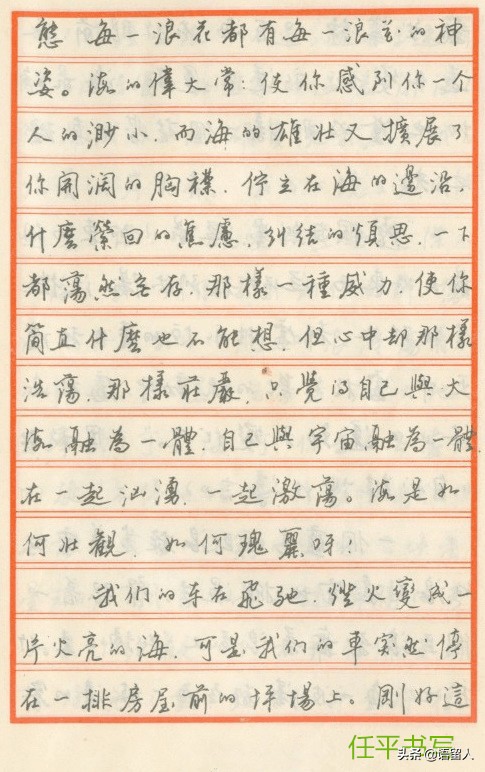 態每一浪花都有每一浪花的神
姿。海的偉大常使你感到你一个
人的渺小.而海的雄壯又擴展了
你開闊的胸襟.佇立在海的邊沿.
什麼縈回的焦慮.糾结的煩思.一下
都蕩然無存.那樣一種威力.使你
簡直什麼也不能想.但心中却那樣
浩蕩.那樣莊嚴.只覺得自己與大
海融為一體.自己與宇宙融為一體
在一起汹湧.一起激蕩。海是如
何壯觀.如何瑰麗呀!
我们的车在飛馳.燈火變成一
片火亮的海.可是我们的車突然停
在一排房屋前的坪場上。剛好這
任平书写
头条@语留人